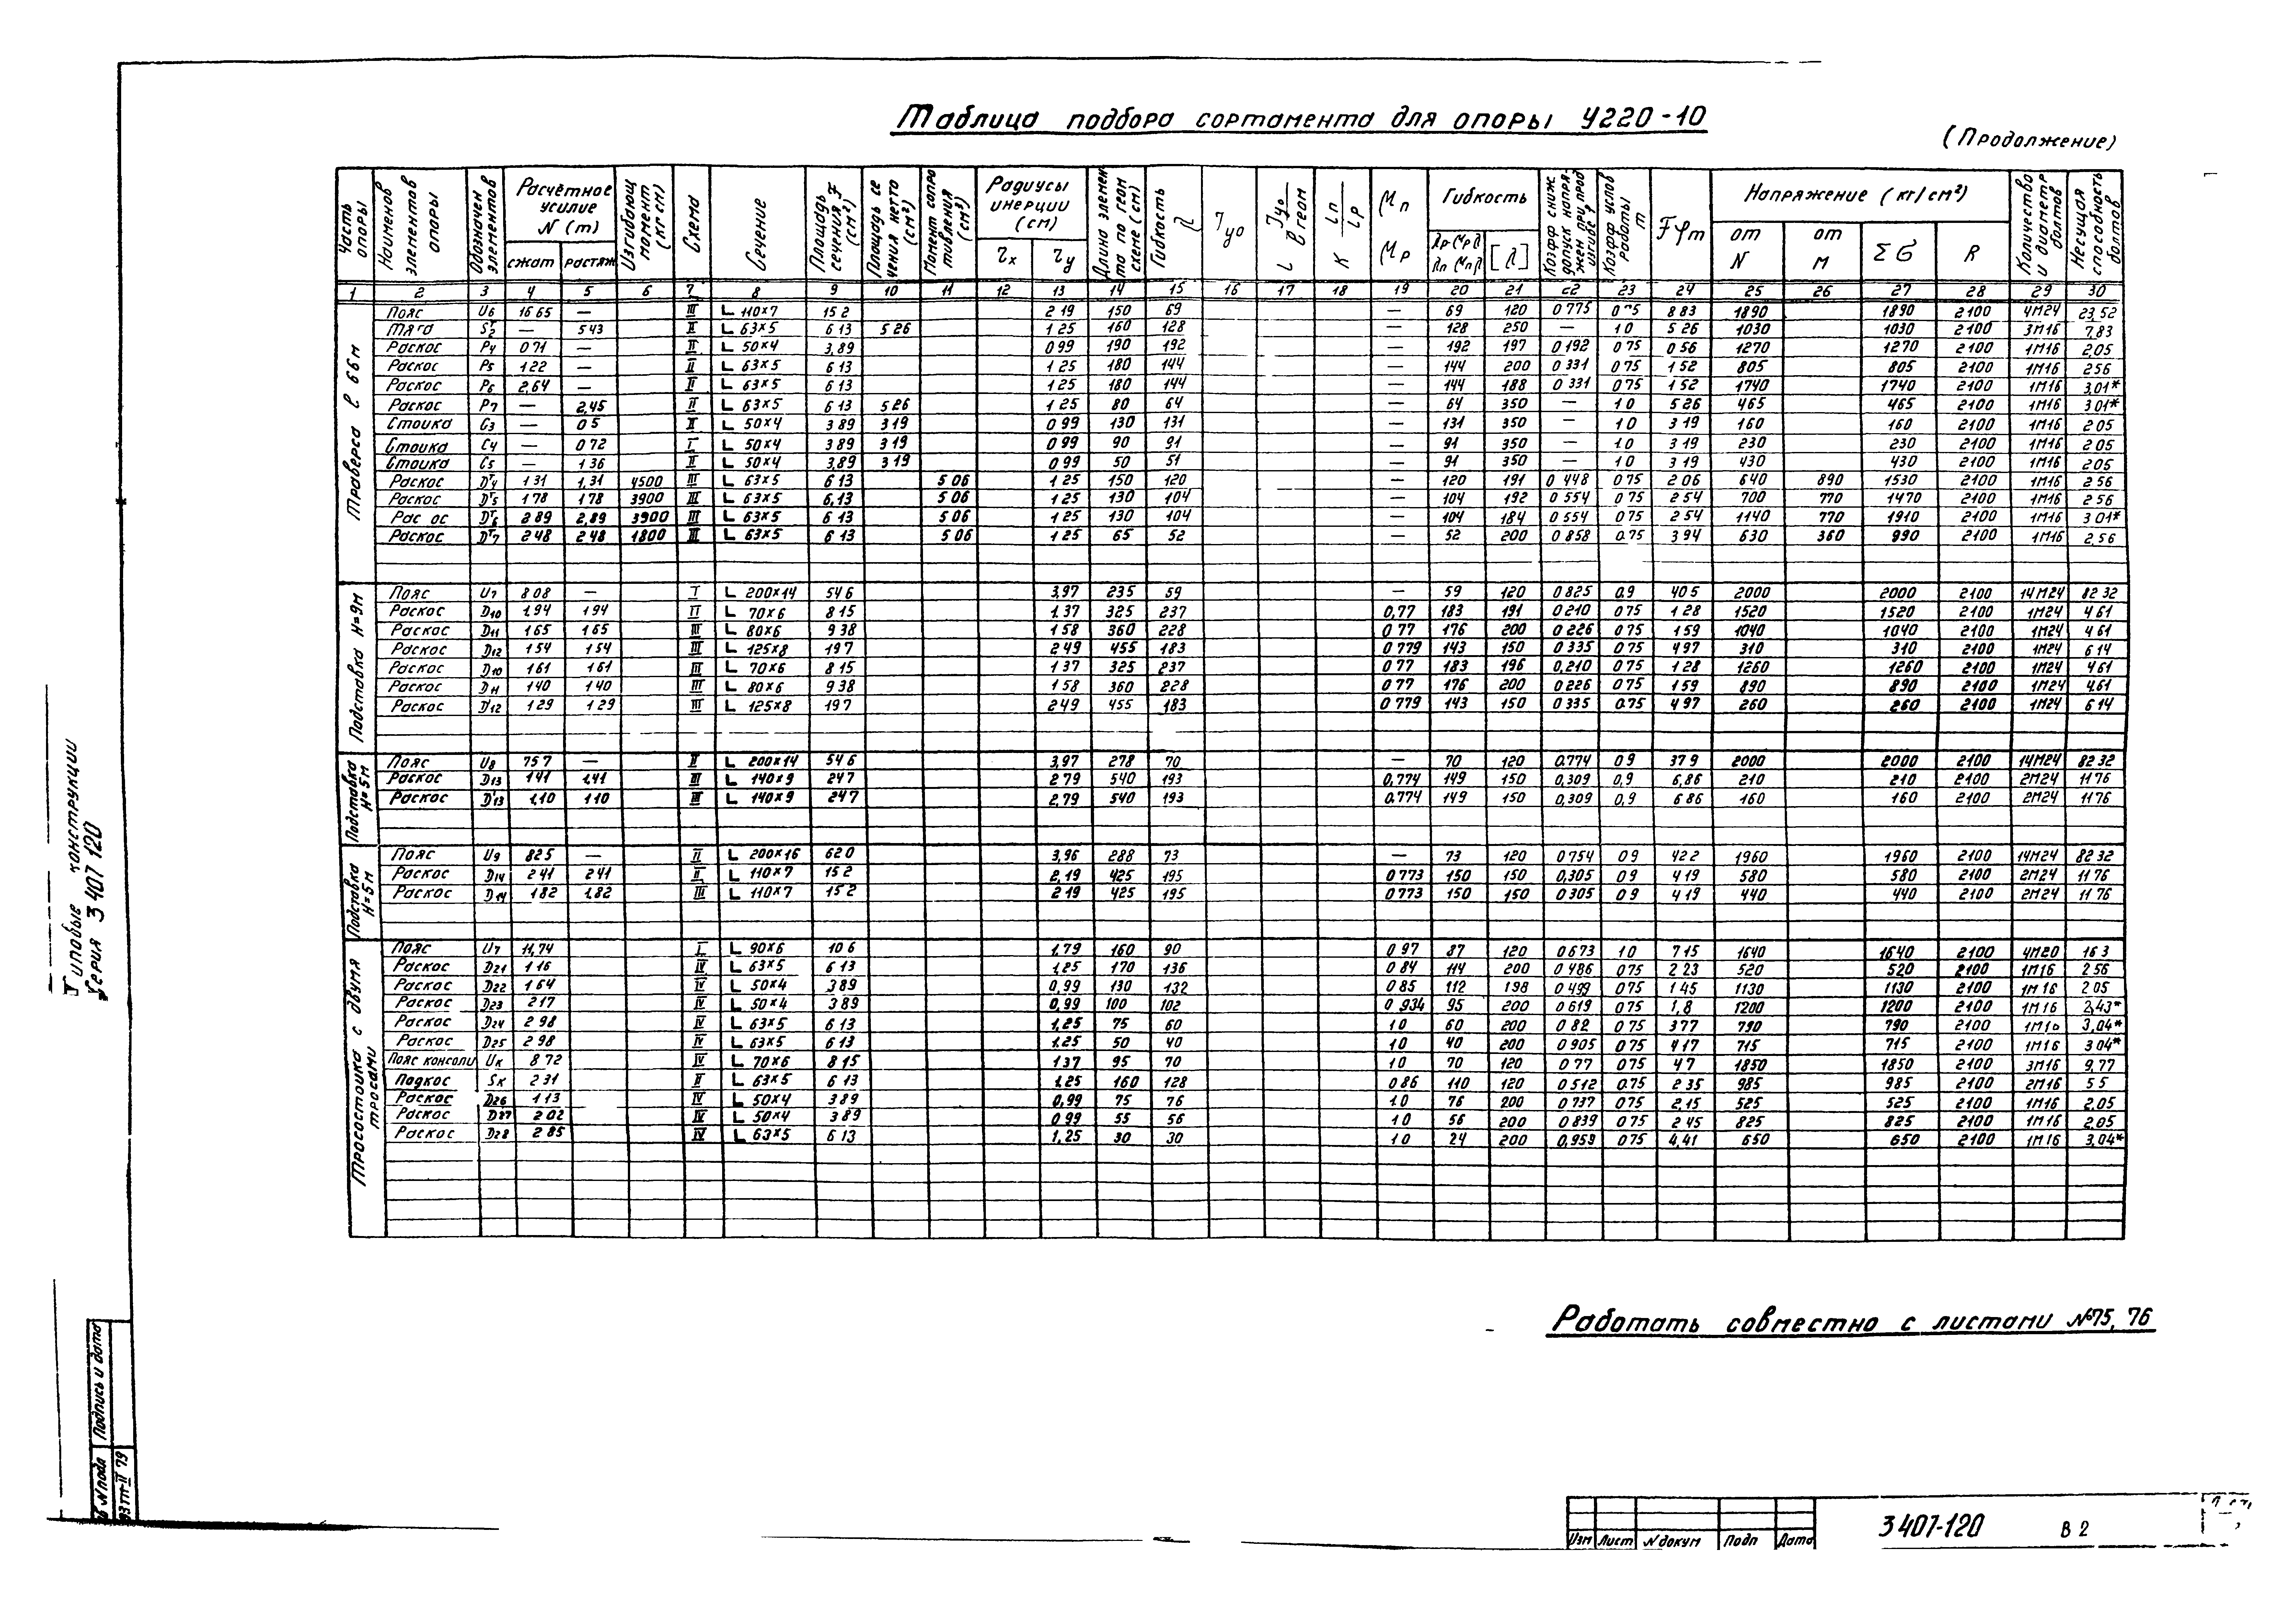 Таблица подбора сортамента для опоры У220-10
(Продолжение)
Часть опоры | Наименов элементов опоры | Обозначен элементов | Расчётное усилие N (т) сжат растяж | Изгибающ момент (кг см) | Схема | Сечение | Площадь сечения F (см²) | Площадь сечения нетто (см²) | Момент сопротивления (см³) | Радиусы инерции (см) | Длина элемента по геом схеме (см) | Гибкость | Гибкость | F φ m | Напряжение (кг/см²) от N от M ΣG R | Количество и диаметр болтов | Несущая способность болтов
1 2 3 4 5 6 7 8 9 10 11 12 13 14 15 16 17 18 19 20 21 22 23 24 25 26 27 28 29 30
Траверса ℓ 6 6 м
Пояс U6 16 65 — III L 110×7 15 2 2 19 150 69 — 69 120 0 775 8 83 1890 1890 2100 4М24 23,52
Тяга — 5 43 II L 63×5 6 13 5 26 1 25 160 128 — 128 250 — 1 0 5 26 1030 1030 2100 3М16 7,83
Раскос P4 0 71 — II L 50×4 3,89 0 99 190 192 — 192 197 0 192 0 75 0 56 1270 1270 2100 1М16 2,05
Раскос P5 1 22 — II L 63×5 6 13 1 25 180 144 — 144 200 0 331 0 75 1 52 805 805 2100 1М16 2 56
Раскос P6 2,64 — II L 63×5 6 13 1 25 180 144 — 144 188 0 331 0 75 1 52 1740 1740 2100 1М16 3,01*
Раскос P7 — 2,45 II L 63×5 6 13 5 26 1 25 80 64 — 64 350 — 1 0 5 26 465 465 2100 1М16 3 01*
Стоика C3 — 0 5 II L 50×4 3 89 3 19 0 99 130 131 — 131 350 — 1 0 3 19 160 160 2100 1М16 2 05
Стоика C4 — 0 72 I L 50×4 3 89 3 19 0 99 90 91 — 91 350 — 1 0 3 19 230 230 2100 1М16 2 05
Стоика C5 — 1 36 II L 50×4 3,89 3 19 0 99 50 51 — 91 350 — 1 0 3 19 430 430 2100 1М16 2 05
Раскос Dт4 1 31 1,31 4500 III L 63×5 6 13 5 06 1 25 150 120 — 120 191 0 448 0 75 2 06 640 890 1530 2100 1М16 2 56
Раскос Dт5 1 78 1 78 3900 III L 63×5 6,13 5 06 1 25 130 104 — 104 192 0 554 0 75 2 54 700 770 1470 2100 1М16 2 56
Рас ос Dт6 2 89 2,89 3900 III L 63×5 6 13 5 06 1 25 130 104 — 104 184 0 554 0 75 2 54 1140 770 1910 2100 1М16 3 01*
Раскос Dт7 2 48 2 48 1800 III L 63×5 6 13 5 06 1 25 65 52 — 52 200 0 858 0.75 3 94 630 360 990 2100 1М16 2,56
Подставка Н=9м
Пояс U7 8 08 — I L 200×14 54 6 3,97 235 59 — 59 120 0 825 0.9 40 5 2000 2000 2100 14М24 82 32
Раскос D10 1,94 1 94 II L 70×6 8 15 1.37 325 237 0,77 183 191 0 210 0 75 1 28 1520 1520 2100 1М24 4 61
Раскос D11 1 65 1 65 III L 80×6 9 38 1 58 360 228 0 77 176 200 0 226 0 75 1 59 1040 1040 2100 1М24 4 61
Раскос D12 1 54 1 54 III L 125×8 19 7 2 49 455 183 0 779 143 150 0 335 0 75 4 97 310 310 2100 1М24 6 14
Раскос D10 1 61 1 61 III L 70×6 8 15 1 37 325 237 0 77 183 196 0,210 0 75 1 28 1260 1260 2100 1М24 4 61
Раскос D11 1 40 1 40 III L 80×6 9 38 1 58 360 228 0 77 176 200 0 226 0 75 1 59 890 890 2100 1М24 4,61
Раскос D'12 1 29 1 29 III L 125×8 19 7 2 49 455 183 0 779 143 150 0 335 0.75 4 97 260 260 2100 1М24 6 14
Подставка Н=5м
Пояс U8 75 7 — II L 200×14 54 6 3,97 278 70 — 70 120 0.774 0 9 37 9 2000 2000 2100 14М24 82 32
Раскос D13 1 41 1,41 III L 140×9 24 7 2 79 540 193 0,774 149 150 0,309 0,9 6,86 210 210 2100 2М24 11 76
Раскос D'13 1,10 1 10 III L 140×9 24 7 2,79 540 193 0.774 149 150 0,309 0,9 6 86 160 160 2100 2М24 11 76
Подставка Н=5м
Пояс U9 82 5 — II L 200×16 62 0 3,96 288 73 — 73 120 0 754 0 9 42 2 1960 1960 2100 14М24 82 32
Раскос D14 2 41 2 41 II L 110×7 15 2 2,19 425 195 0 773 150 150 0,305 0 9 4 19 580 580 2100 2М24 11 76
Раскос D14 1 82 1,82 III L 110×7 15 2 2 19 425 195 0 773 150 150 0 305 0 9 4 19 440 440 2100 2М24 11 76
Тросостоика с двумя тросами
Пояс U7 11,74 I L 90×6 10 6 1,79 160 90 0 97 87 120 0 673 1 0 7 15 1640 1640 2100 4М20 16 3
Раскос D21 1 16 IV L 63×5 6 13 1,25 170 136 0 84 114 200 0 486 0 75 2 23 520 520 2100 1М16 2 56
Раскос D22 1 64 IV L 50×4 3 89 0,99 130 132 0 85 112 198 0 499 0 75 1 45 1130 1130 2100 1М 16 2 05
Раскос D23 2 17 IV L 50×4 3 89 0,99 100 102 0 934 95 200 0 619 0 75 1,8 1200 1200 2100 1М16 2,43*
Раскос D24 2 98 IV L 63×5 6 13 1,25 75 60 1 0 60 200 0 82 0 75 3 77 790 790 2100 3,04*
Раскос D25 2 98 IV L 63×5 6 13 1.25 50 40 1 0 40 200 0 905 0 75 4 17 715 715 2100 1М16 3 04*
Пояс консоли Uк 8 72 IV L 70×6 8 15 1 37 95 70 1 0 70 120 0 77 0 75 4 7 1850 1850 2100 3М16 9,77
Подкос Sк 2 31 II L 63×5 6 13 1,25 160 128 0 86 110 120 0 512 0.75 2 35 985 985 2100 2М16 5 5
Раскос D26 1 13 IV L 50×4 3 89 0,99 75 76 1.0 76 200 0 737 0 75 2,15 525 525 2100 1М16 2,05
Раскос D27 2 02 IV L 50×4 3 89 0 99 55 56 1 0 56 200 0 839 0 75 2 45 825 825 2100 1М16 2,05
Раскос D28 2 85 IV L 63×5 6 13 1,25 30 30 1 0 24 200 0,959 0 75 4,41 650 650 2100 1М16 3,04*
Работать совместно с листами №75, 76
Типовые конструкции
Серия 3 407 120
Подпись и дата
N подл
Изм Лист N докум Подп Дата
3 407-120 В 2